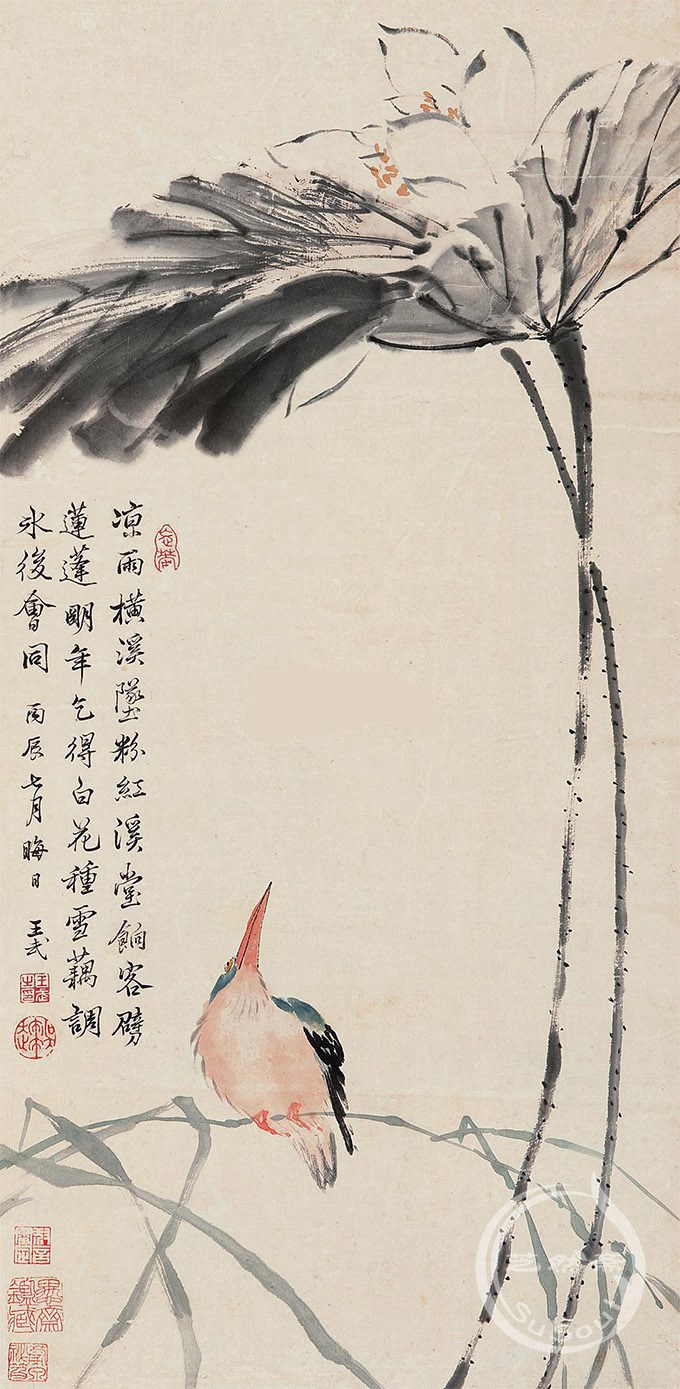 忘葊
凉雨橫溪墜粉紅溪堂餉客劈
蓮蓬明年乞得白花種雪藕調
氷後會同 丙辰七月晦日 王武